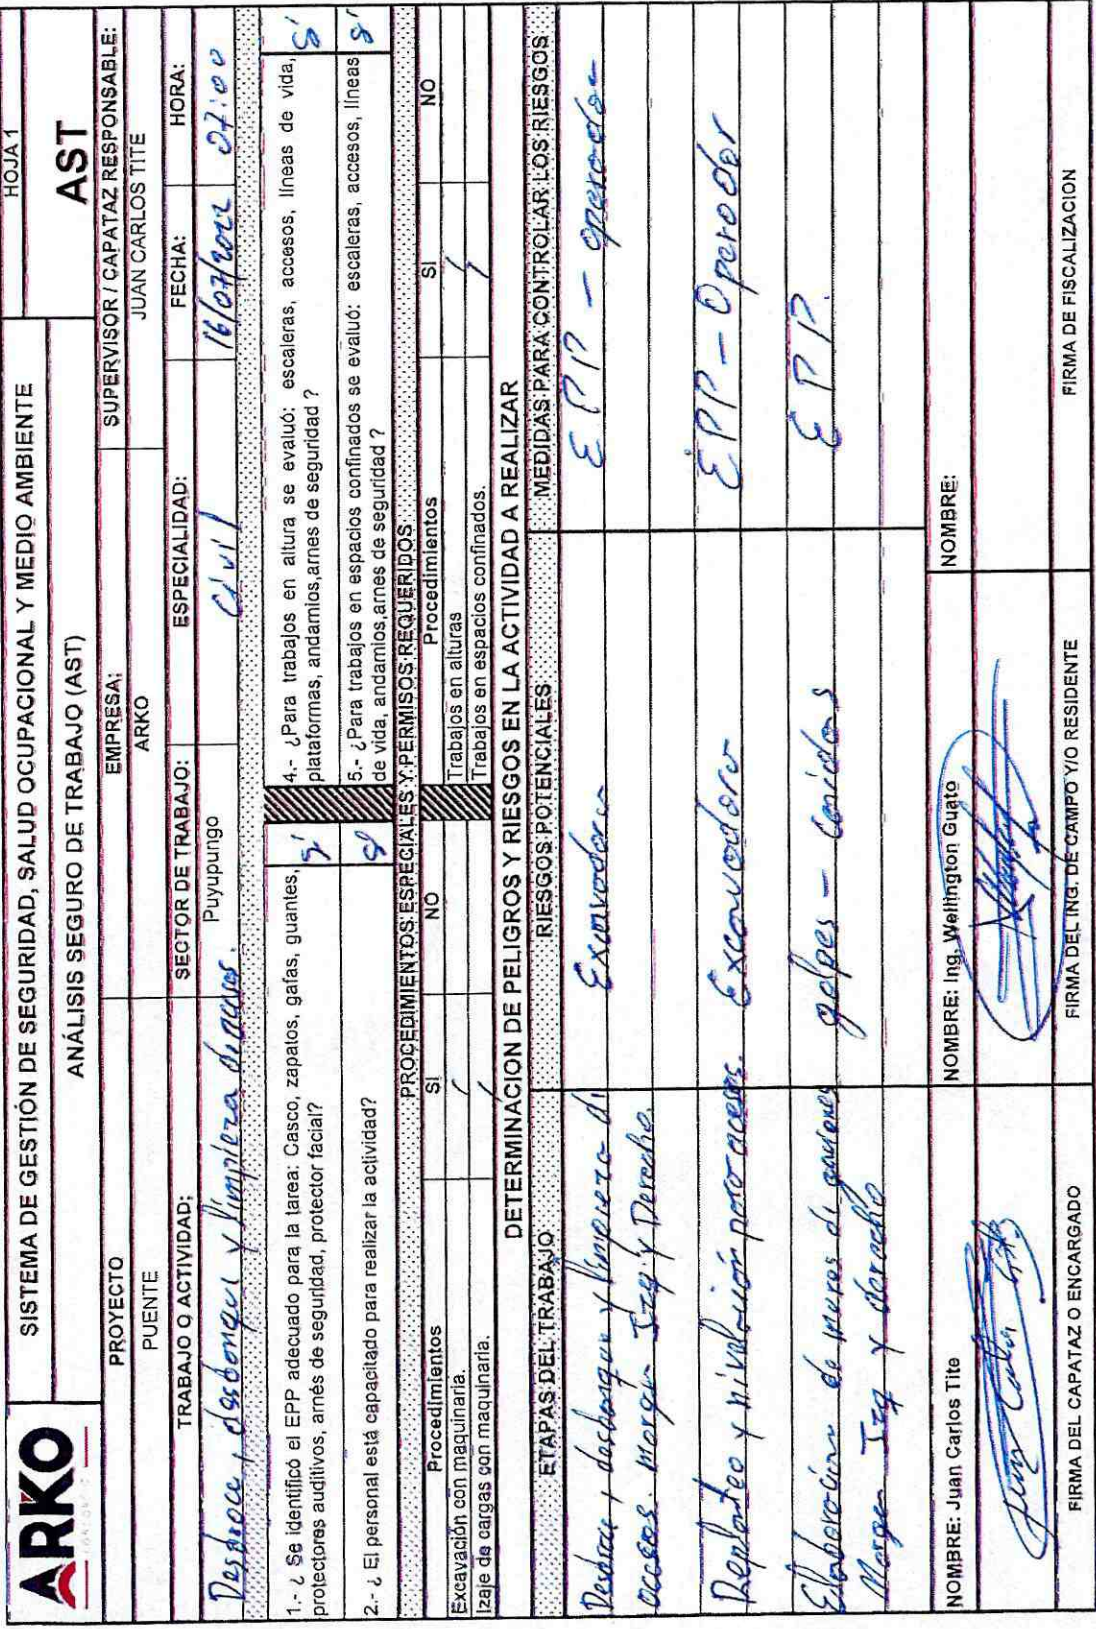 ARKO
SISTEMA DE GESTIÓN DE SEGURIDAD, SALUD OCUPACIONAL Y MEDIO AMBIENTE
HOJA 1
ANÁLISIS SEGURO DE TRABAJO (AST)
AST
PROYECTO
EMPRESA:
SUPERVISOR / CAPATAZ RESPONSABLE:
PUENTE
ARKO
JUAN CARLOS TITE
TRABAJO O ACTIVIDAD:
SECTOR DE TRABAJO:
ESPECIALIDAD:
FECHA:
HORA:
Desbroce, desbonque y limpieza de accesos.
Puyupungo
Civil
16/07/2022
07:00
1.- ¿ Se identificó el EPP adecuado para la tarea: Casco, zapatos, gafas, guantes,
protectores auditivos, arnés de seguridad, protector facial?
si
4.- ¿Para trabajos en altura se evaluó: escaleras, accesos, líneas de vida,
plataformas, andamios,arnes de seguridad ?
si
2.- ¿ El personal está capacitado para realizar la actividad?
si
5.- ¿Para trabajos en espacios confinados se evaluó: escaleras, accesos, líneas
de vida, andamios,arnes de seguridad ?
si
PROCEDIMIENTOS ESPECIALES Y PERMISOS REQUERIDOS
Procedimientos
SI
NO
Procedimientos
SI
NO
Excavación con maquinaria.
/
Trabajos en alturas
/
Izaje de cargas con maquinaria.
/
Trabajos en espacios confinados.
/
DETERMINACION DE PELIGROS Y RIESGOS EN LA ACTIVIDAD A REALIZAR
ETAPAS DEL TRABAJO
RIESGOS POTENCIALES
MEDIDAS PARA CONTROLAR LOS RIESGOS
Desbroce, desbonque y limpieza de
Excavadora
EPP - operador
accesos. margen Izq y Derecho.
Replanteo y nivelación para accesos.
Excavadora
EPP - Operador
Elaboración de muros de gaviones
golpes - Caidas
EPP.
Margen Izq y derecho
NOMBRE: Juan Carlos Tite
NOMBRE: Ing. Wellington Guato
NOMBRE:
FIRMA DEL CAPATAZ O ENCARGADO
FIRMA DEL ING. DE CAMPO Y/O RESIDENTE
FIRMA DE FISCALIZACION